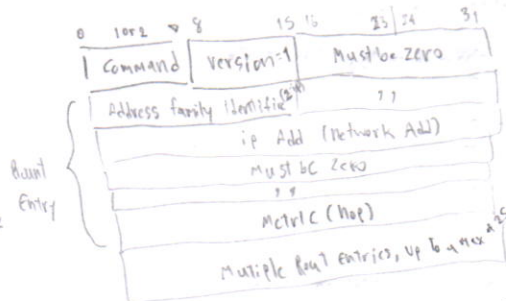 0 1or2 8 15 16 23 24 31
Command version=1 Must be zero
Address family Identifie (2 ,,
ip Add (Network Add)
Must bc Zero
,,
Rount
Entry
Metric (hop)
Mutiple Rout entries, up to a Max 25